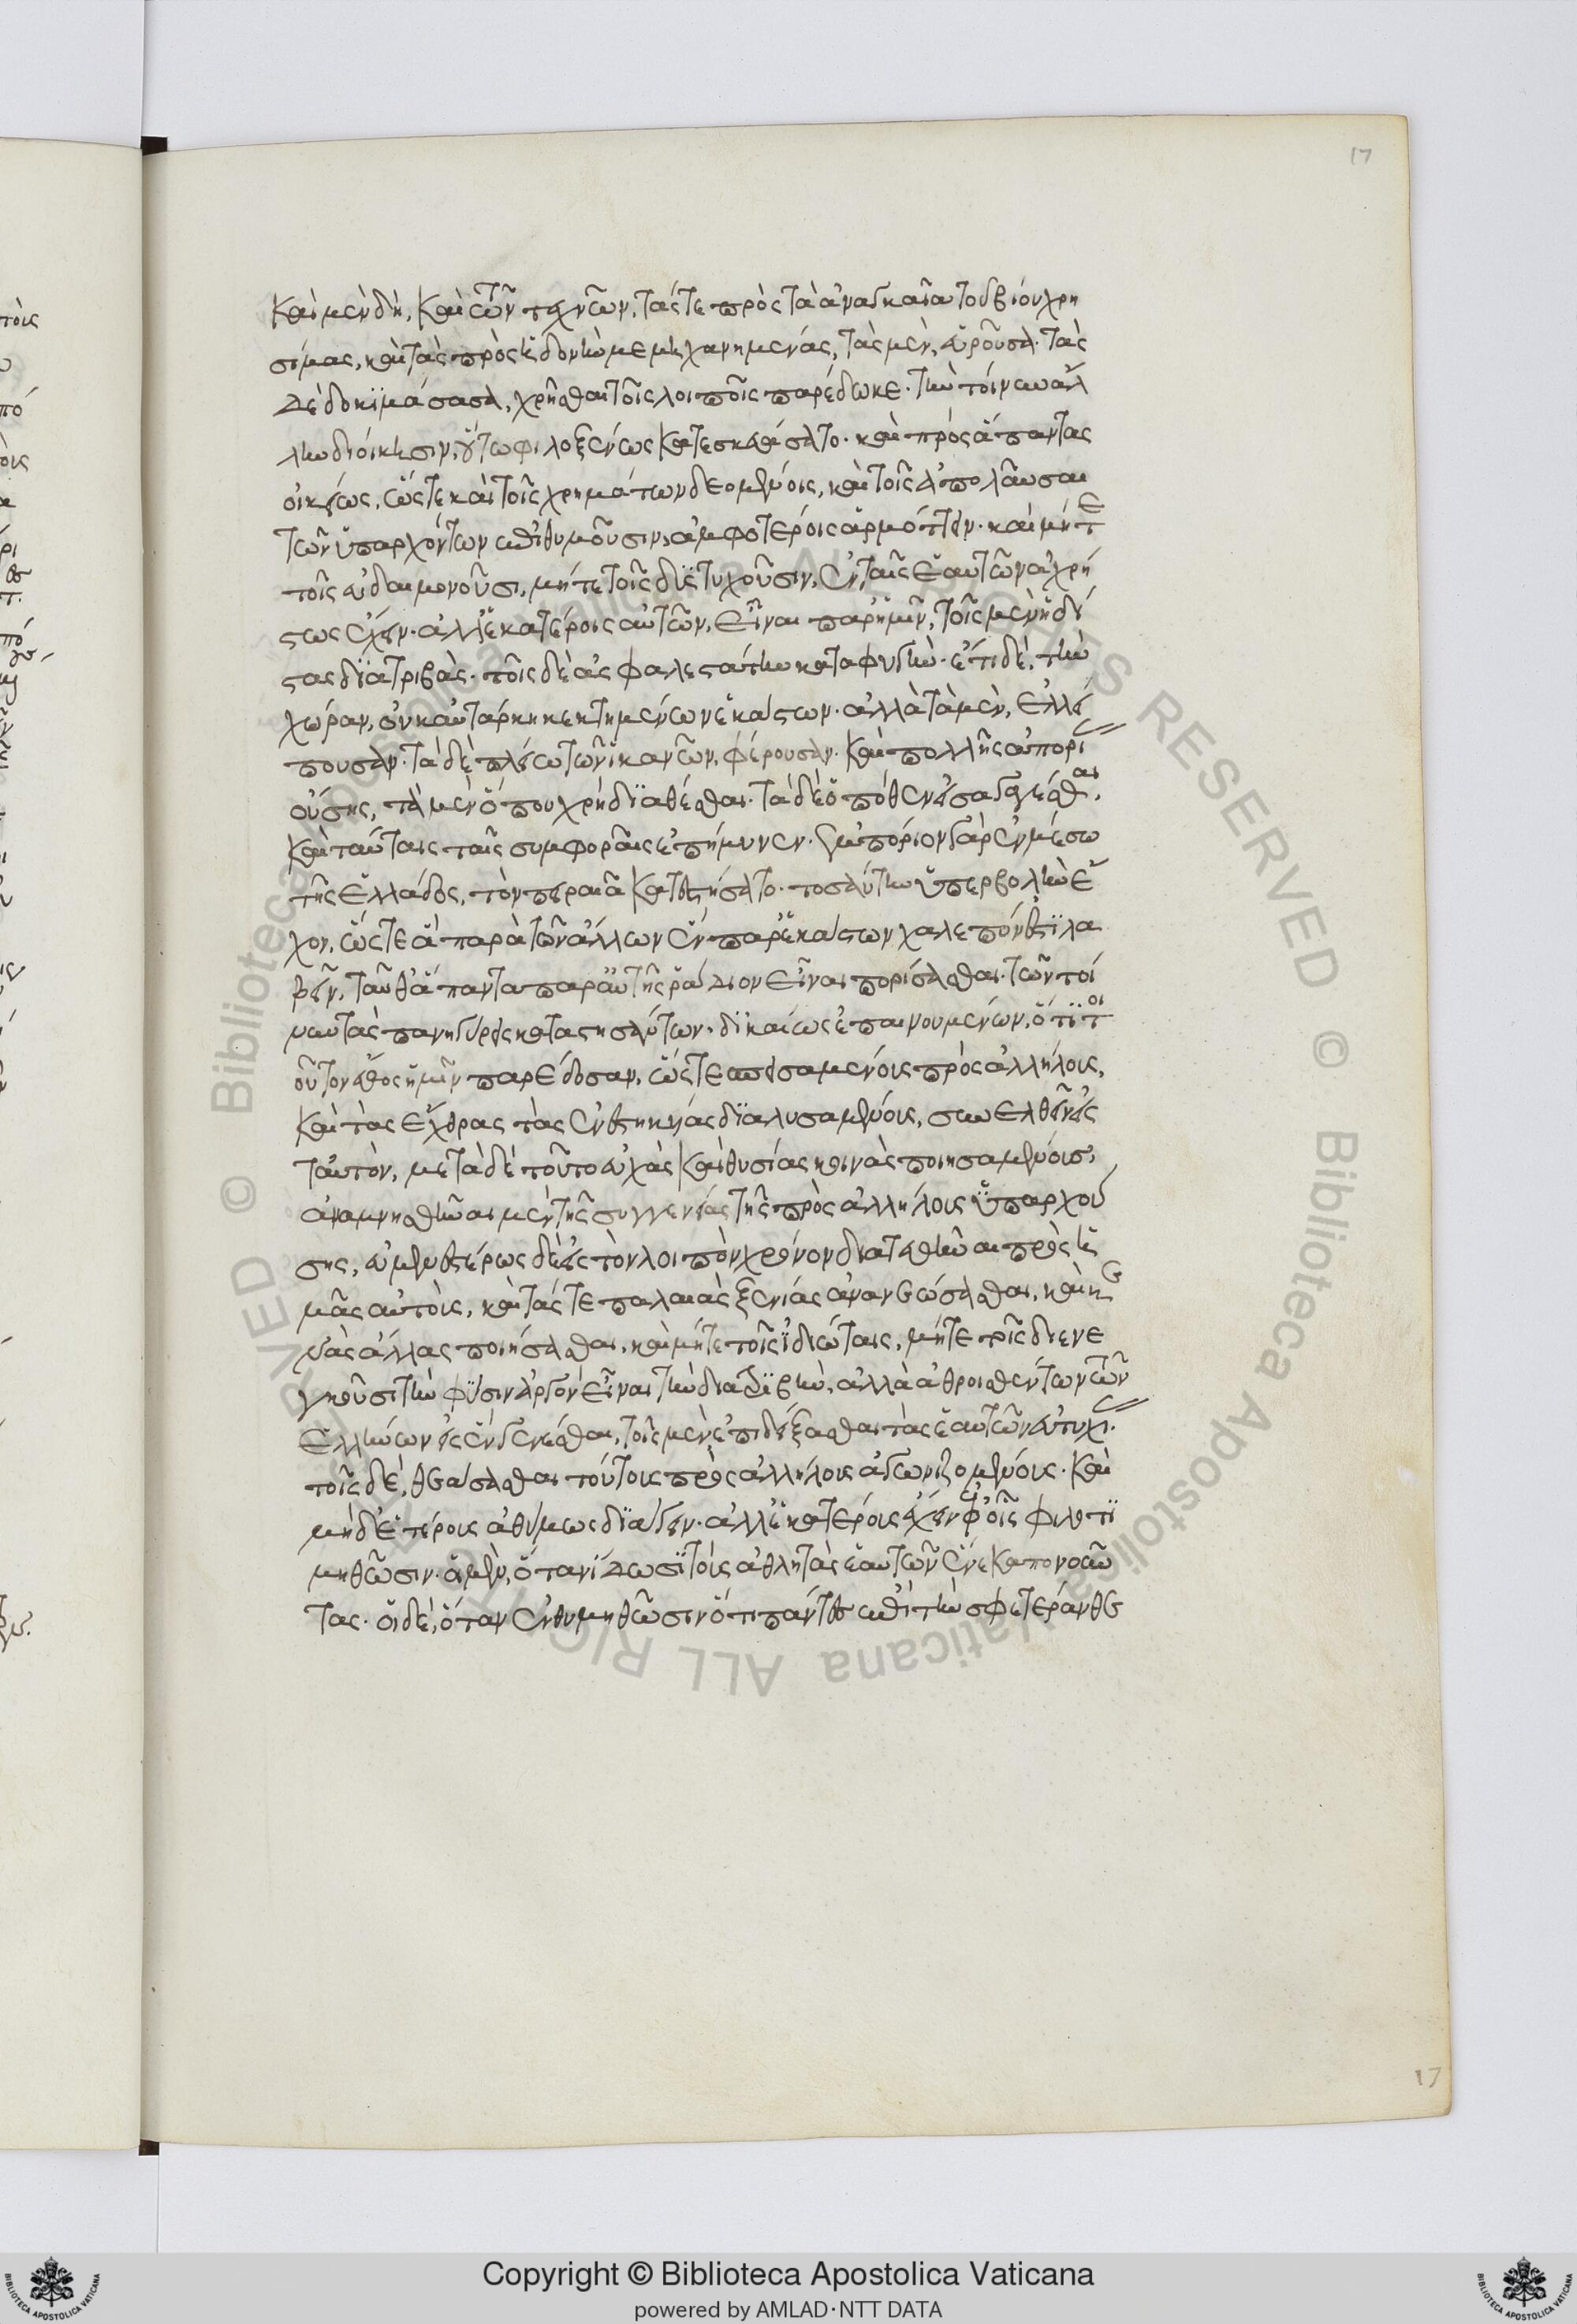 17
καὶ μὲν δὴ, καὶ τῶν τεχνῶν, τάς τε πρὸς τὰ ἀναγκαῖα τοῦ βίου χρη
σίμας, καὶ τὰς πρὸς ἡδονὴν μεμηχανημένας, τὰς μὲν, εὑροῦσα· τὰς
δὲ δοκιμάσασα, χρῆσθαι τοῖς λοιποῖς παρέδωκε· τὴν τοίνυν ἄλ
λην διοίκησιν, οὕτω φιλοξένως κατεσκευάσατο· καὶ πρὸς ἅπαντας
οἰκείως, ὥστε καὶ τοῖς χρημάτων δεομένοις, καὶ τοῖς ἀπολαῦσαι
τῶν ὑπαρχόντων ἐπιθυμοῦσιν, ἀμφοτέροις ἁρμόττειν· καὶ μήτε
τοῖς εὐδαιμονοῦσι, μήτε τοῖς δυστυχοῦσιν, ἐν ταῖς ἑαυτῶν ἀχρή
στως ἔχειν· ἀλλ' ἑκατέροις αὐτῶν, εἶναι παρ' ἡμῖν, τοῖς μὲν ἡδί
στας διατριβὰς· τοῖς δὲ ἀσφαλεστάτην καταφυγὴν· ἔτι δὲ, τὴν
χώραν, οὐκ αὐτάρκη κεκτημένων ἑκάστων· ἀλλὰ τὰ μὲν, ἐλλεί
πουσαν· τὰ δὲ πλείω τῶν ἱκανῶν, φέρουσαν· καὶ πολλῆς ἀπορί
οὔσης, τὰ μὲν ὅπου χρὴ διαθέσθαι· τὰ δὲ ὁπόθεν εἰσαγαγέσθαι,
καὶ ταύταις ταῖς συμφοραῖς ἐπήμυνεν· ἐμπόριον γὰρ ἐν μέσω
τῆς ἑλλάδος, τὸν πειραιᾶ κατεστήσατο· τοσαύτην ὑπερβολὴν ἔ
χον, ὥστε ἃ παρὰ τῶν ἄλλων ἓν παρ' ἑκάστων χαλεπόν ἐστι λα
βεῖν, ταῦθ' ἅπαντα παρ' αὐτῆς ῥάδιον εἶναι πορίσασθαι· τῶν τοί
νυν τὰς πανηγύρεις καταστησάντων· δικαίως ἐπαινουμένων, ὅτι τοι
οῦτον ἔθος ἡμῖν παρέδοσαν, ὥστε σπεισαμένοις πρὸς ἀλλήλοις,
καὶ τὰς ἔχθρας τὰς ἐνεστηκυίας διαλυσαμένοις, συνελθεῖν εἰς
ταὐτὸν, μετὰ δὲ τοῦτο εὐχὰς καὶ θυσίας κοινὰς ποιησαμένοις,
ἀναμνησθῆναι μὲν τῆς συγγενείας τῆς πρὸς ἀλλήλους ὑπαρχού
σης, εὐμενεστέρως δὲ εἰς τὸν λοιπὸν χρόνον διατεθῆναι πρὸς ἡ
μᾶς αὐτοὺς, καὶ τάς τε παλαιὰς ξενίας ἀνανεώσασθαι, καὶ κ
νὰς ἄλλας ποιήσασθαι, καὶ μήτε τοῖς ἰδιώταις, μήτε τοῖς διενε
γκοῦσι τὴν φύσιν ἀργὸν εἶναι τὴν διατριβὴν, ἀλλὰ ἀθροισθέντων τῶν
ἑλλήνων εἰς ἓν γενέσθαι, τοῖς μὲν, ἐπιδείξασθαι τὰς ἑαυτῶν εὐτυχί·
τοῖς δὲ, θεάσασθαι τούτους πρὸς ἀλλήλους ἀγωνιζομένοις· καὶ
μηδετέροις ἀθύμως διάγειν· ἀλλ' ἑκατέροις ἔχειν ἐφ' οἷς φιλοτι
μηθῶσιν· οἱ μὲν, ὅταν ἴδωσι τοὺς ἀθλητὰς ἑαυτῶν ἕνεκα πονοῦν
τας· οἱ δὲ, ὅταν ἐνθυμηθῶσιν ὅτι πάντες ἐπὶ τὴν σφετέραν θε
17
Copyright © Biblioteca Apostolica Vaticana
powered by AMLAD·NTT DATA